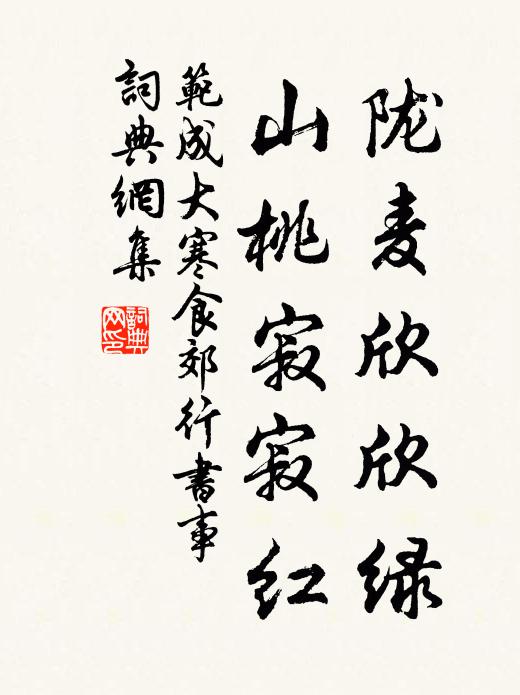 陇麦欣欣绿
山桃寂寂红
範成大寒食郊行書事
詞典網集
詞典网印